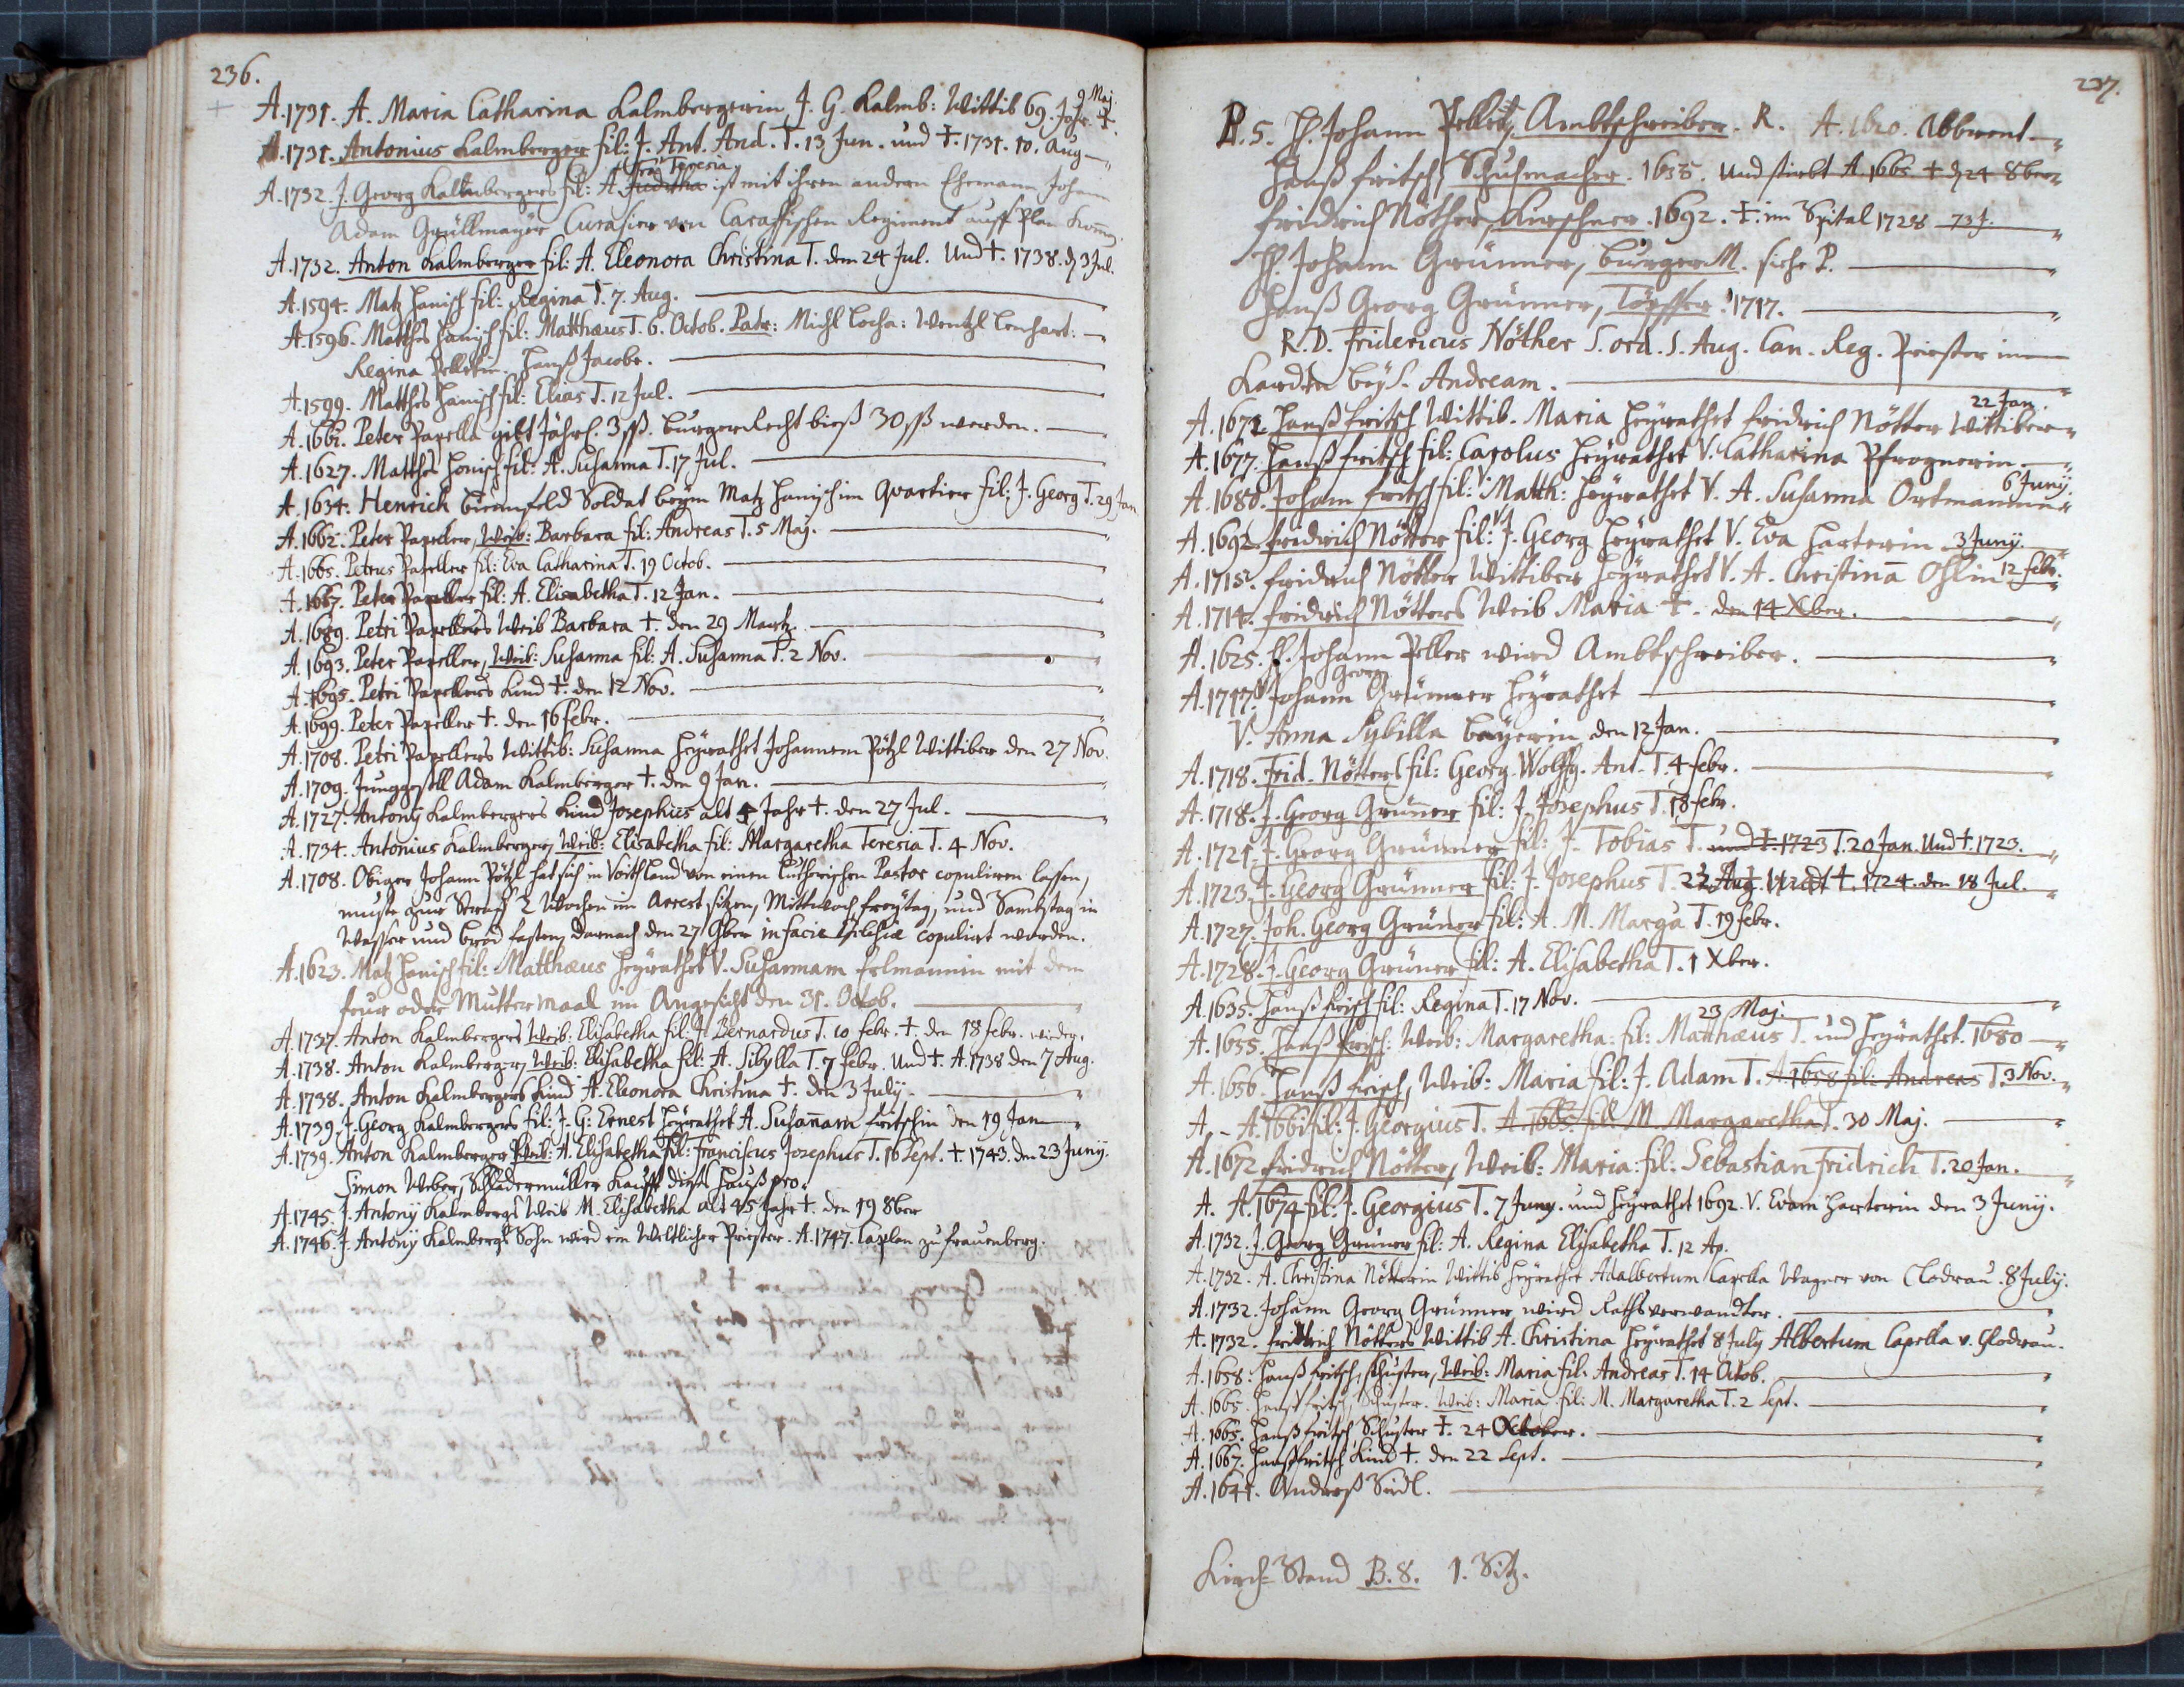 236.
9 Maj.
A. 1731. A. Maria Catharina Kalmbergerin J. G. Kalmb: Wittib 69. Jahr. †.
A. 1731. Antonius Kalmberger fil: J. Ant. And. T. 13 Jun. und †. 1731. 10. Aug
Teresia
A. 1732. J. Georg Kallmbergers fil: A. Juditha ist mit ihren andern Ehemann Johann
Adam Grüllmayer Curasier von Caraffischen Regiment auff Plan
A. 1732. Anton Kalmberger fil: A. Eleonora Christina T. den 24 Jul. Und †. 1738. d. 3 Jul.
A. 1594. Matz Hanisch fil: Regina T. 7. Aug.
A. 1596. Matthes Hanisch fil: Matthæus T. 6. Octob. Patr: Michl Locha: Wentzl Lenhart:
Regina Pelletin. Hanß Jacober.
A. 1599. Matthes Hanisch fil: Elias T. 12 Jul.
A. 1661. Peter Papella gibt Jährl. 3 ß. burgerRecht bieß 30 ß werden.
A. 1627. Matthes Honisch fil: A. Susanna T. 17 Jul.
A. 1634. Henrich Birnfeld Soldat beym Matz Hanisch im Quartier fil: J. Georg T. 29 Jan
A. 1662. Peter Papeller, Weib: Barbara fil: Andreas T. 5 Maj.
A. 1665. Petrus Papeller fil: Eva Catharina T. 19 Octob.
A. 1667. Peter Papeller fil: A. Elisabetha T. 12 Jan.
A. 1689. Petri Papellers Weib Barbara †. den 29 Martz.
A. 1693. Peter Papeller, Weib: Susanna fil: A. Susanna T. 2 Nov.
A. 1695. Petri Papellers Kind †. den 12 Nov.
A. 1699. Peter Papeller †. den 16 febr.
A. 1708. Petri Papellers Wittib: Susanna heyrathet Johannem Pötzl Wittiber den 27 Nov.
A. 1709. Junggesell Adam Kalmberger †. den 9 Jan.
A. 1727. Antony Kalmbergers Kind Josephus alt 4 Jahr †. den 27 Jul.
A. 1734. Antonius Kalmberger, Weib: Elisabetha fil: Margaretha Teresia T. 4 Nov.
A. 1708. Obiger Johann Pötzl hat sich in Voithland von einen Lutherischen Pastor copuliren lassen,
muste zur Straff 2 Wochen im Arrest sitzen, Mittwoch freytag, und Sambstag in
Wasser und brod fasten, darnach den 27 9ber in facie Eclesiæ copulirt worden.
A. 1623. Matz Hanisch fil: Matthæus heyrathet V. Susannam Erlmannin mit dem
feur oder Muttermaal im Angesicht den 31. Octob.
A. 1737. Anton Kalmbergers Weib: Elisabetha fil: J. Bernardus T. 10 febr. †. den 18 febr. wieder.
A. 1738. Anton Kalmberger, Weib: Elisabetha fil: A. Sibylla T. 7 febr. Und †. A. 1738 den 7 Aug.
A. 1738. Anton Kalmbergers Kind A. Eleonora Christina †. den 3 July.
A. 1739. J. Georg Kalmbergers fil: J. G: Ernest heyrathet A. Susannam Fritschin den 19 Jan
A. 1739. Anton Kalmberger Weib: A. Elisabetha fil: Franciscus Josephus T. 16 Sept. †. 1743. den 23 Junij.
Simon Weber, Schladermüller Kaufft dieses Hauß pro.
A. 1745. J. Antony Kalmbergs Weib M. Elisabetha alt 45 Jahr †. den 19 8ber
A. 1746. J. Antony Kalmbergs Sohn wird ein Weltlicher Priester. A. 1747. Caplan zu Frauenberg.
237.
B. 5. H. Johann Pellet, Ambtschreiber. R. A. 1620. Abbrent.
Hanß Fritsch, Schuhmacher. 1635. Und stirbt A. 1665 † d. 24 8ber
Fridrich Nöther, Kirschner. 1692. †. im Spital 1728 73 J.
H. Johann Grünner, burgerM. siehe P.
Hanß Georg Grünner, Töpffer. 1717.
R. D. Fridericus Nöther S. ord. S. Aug. Can. Reg. Priester in
Kardten bey S. Andream.
22 Jan.
A. 1672. Hanß Fritsch Wittib. Maria heyrathet Fridrich Nötter Wittiber
A. 1677. Hanß Fritsch fil: Carolus heyrathet V. Catharina Pfrognerin.
6 Junij.
A. 1680. Johann Fritsch fil: Matth: heyrathet V. A. Susanna Ortmannin
A. 1692. Fridrich Nötter fil: J. Georg heyrathet V. Eva Harterin 3 Junij.
A. 1715. Fridrich Nötter Wittiber heyrathet V. A. Christina Ohlin 12 febr.
A. 1714. Fridrich Nötters Weib Maria †. den 14 Xber.
A. 1625. H. Johann Peller wird Ambtschreiber.
Georg
A. 1717. Johann Grünner heyrathet
V. Anna Sybilla Beyerin den 12 Jan.
A. 1718. Frid. Nötters fil: Georg Wolffg. Ant. T. 4 febr.
A. 1718. J. Georg Grünner fil: J. Josephus T. 18 febr.
A. 1721. J. Georg Grünner fil: J. Tobias T. und †. 1723 T. 20 Jan. Und †. 1723.
A. 1723. J. Georg Grünner fil: J. Josephus T. 22 Aug. Und †. 1724. den 18 Jul.
A. 1727. Joh. Georg Grüner fil: A. M. Marga T. 19 febr.
A. 1728. J. Georg Grüner fil: A. Elisabetha T. 1 Xber.
A. 1635. Hanß Frisch fil: Regina T. 17 Nov.
23 Maj.
A. 1655. Hanß Frisch: Weib: Margaretha: fil: Matthæus T. und heyrathet. 1680
A. 1656. Hanß Frisch, Weib: Maria fil: J. Adam T. A. 1658 fil: Andreas T. 3 Nov.
A. - A. 1661 fil: J. Georgius T. A. 1665. fil: M. Margaretha T. 30 Maj.
A. 1672 Fridrich Nötter, Weib: Maria: fil: Sebastian Fridrich T. 20 Jan.
A. A. 1674 fil: J. Georgius T. 7 Juny. und heyrathet 1692. V. Evam Harterin den 3 Junij.
A. 1732. J. Georg Grüner fil: A. Regina Elisabetha T. 12 Ap.
A. 1732. A. Christina Nötterin Wittib heyrathet Adalbertum Capella Wagner von Clodrau. 8 July.
A. 1732. Johann Georg Grünner wird Rathsverwandter.
A. 1732. Fridrich Nötters Wittib A. Christina heyrathet 8 July Albertum Capella v. Clodrau.
A. 1658. Hanß Fritsch, Schuster, Weib: Maria fil: Andreas T. 14 Octob.
A. 1665. Hanß Fritsch, Schuster. Weib: Maria fil: M. Margaretha T. 2 Sept.
A. 1665. Hanß Fritsch Schuster †. 24 October.
A. 1667. Hanß Fritsch Kind †. den 22 Sept.
A. 1641. Andreß Sindl.
Kirch-Stand B. 8. 1. Sitz.